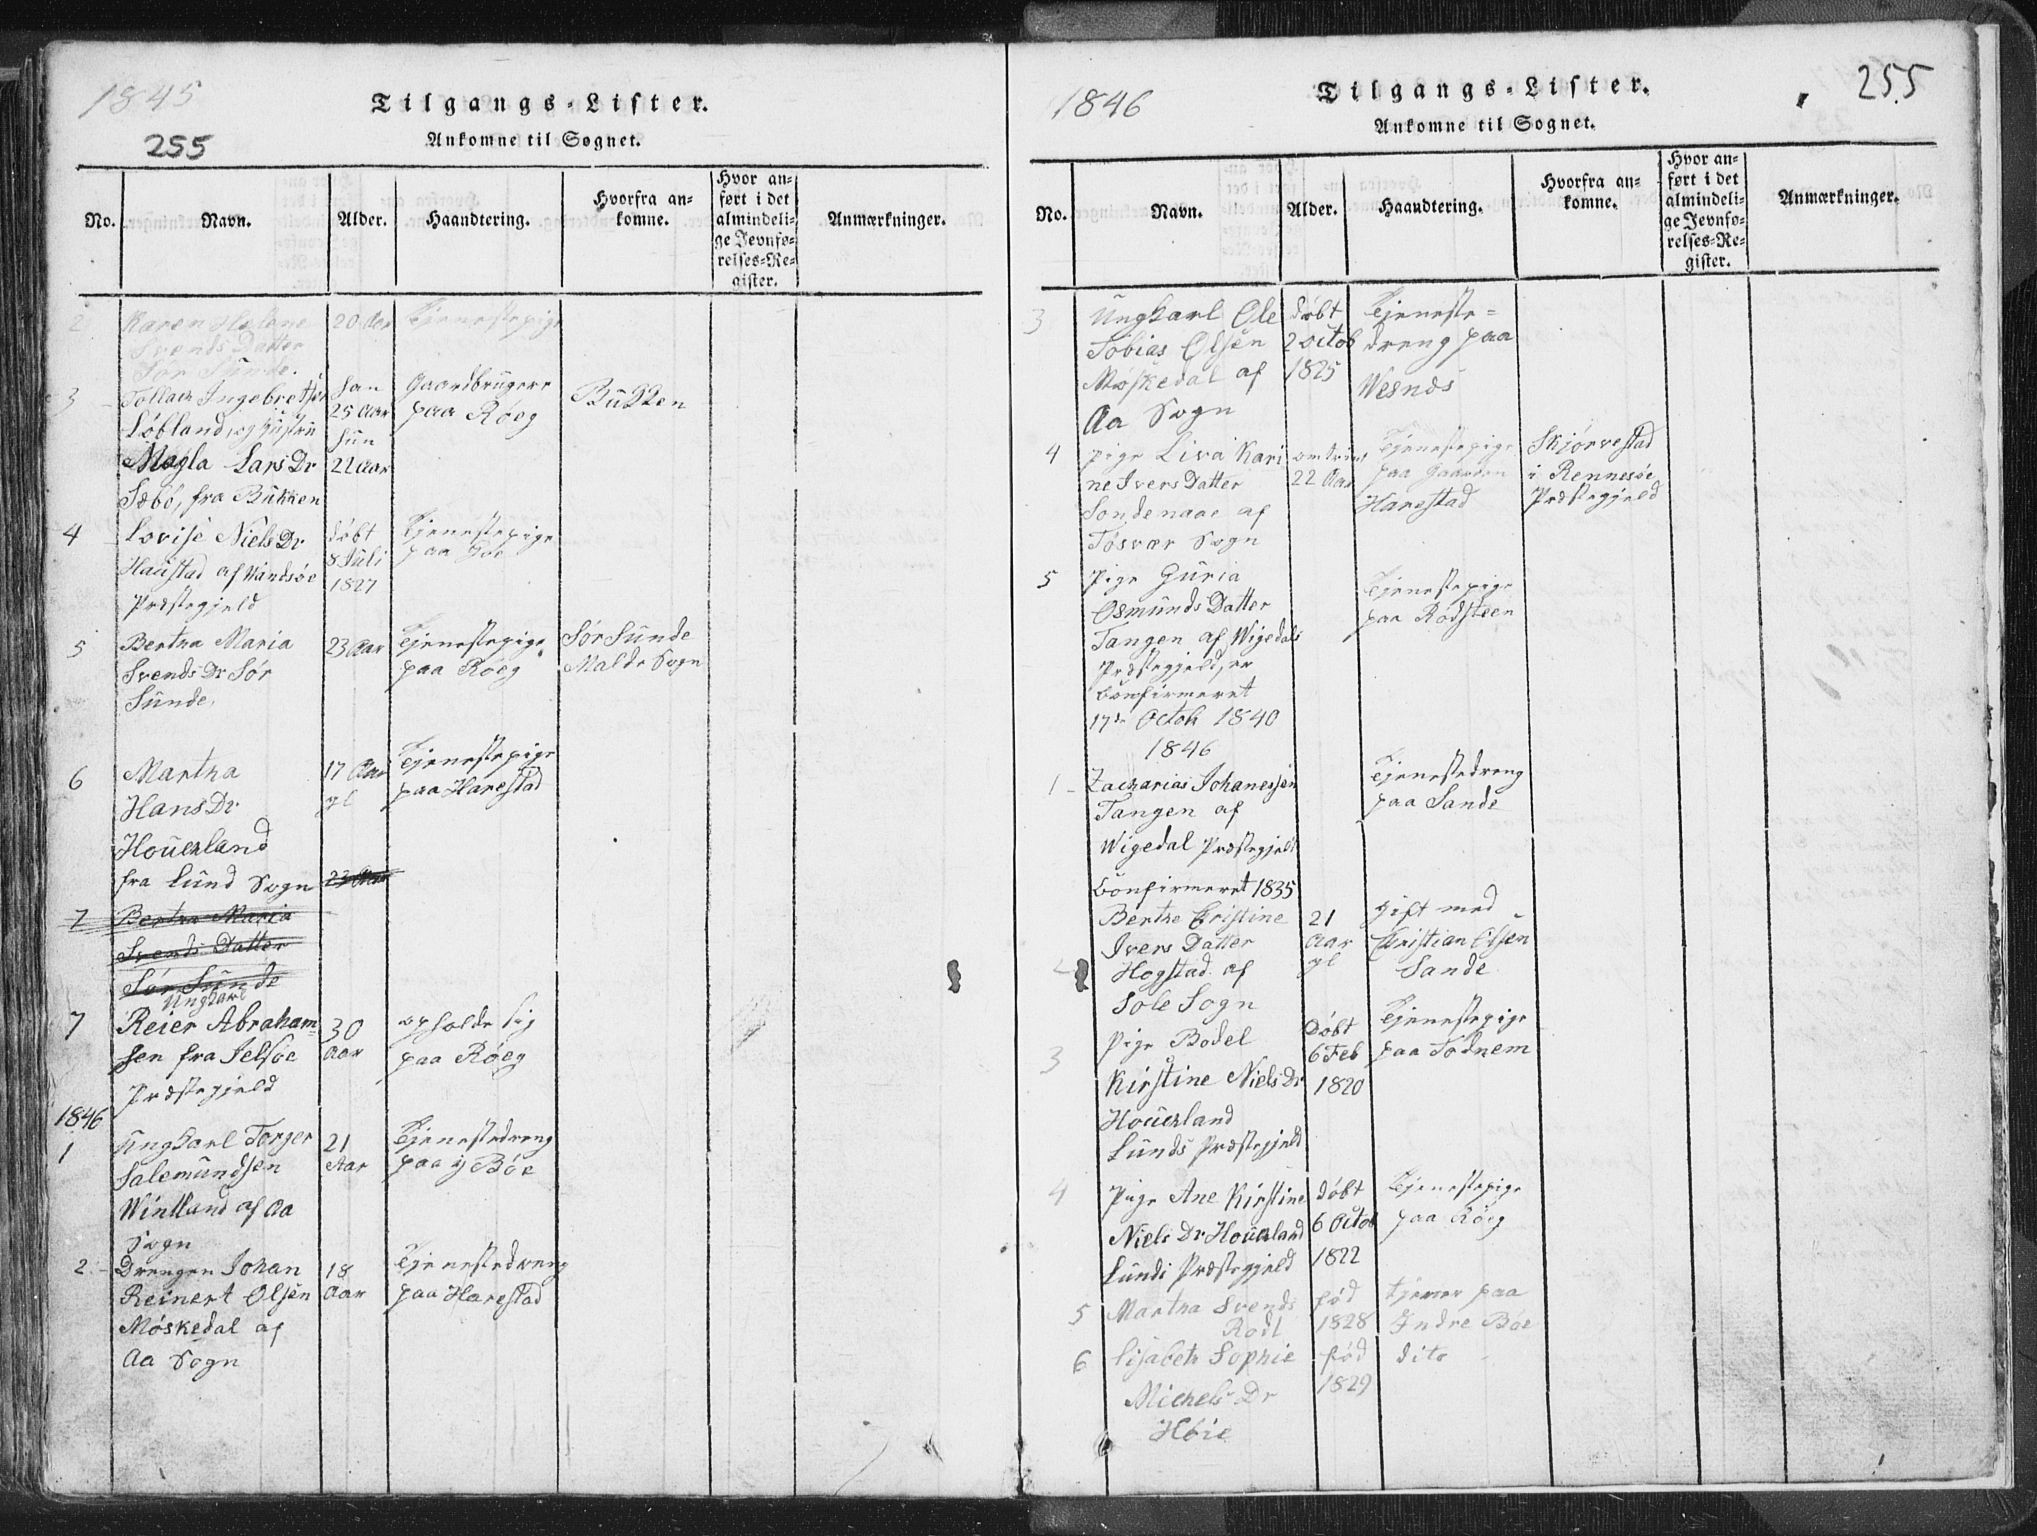 1845
Tilgangs-Lister.
255
Ankomne til Sognet.
No. Navn. Alder. Haandtering. Hvorfra ankomne. Hvor anført i det almindelige Jevnførelses-Register. Anmærkninger.
2 Karen Helene 20 Aar Tjenestepige
Svends Datter
Sør Sunde.
3 Tollach Ingebretsen han Gaardbrugere Bukken
Løbland, og Hustru 25 Aar paa Røeg
hun
Magla Lars Dr 22 Aar
Sæbø, fra Bukken
4 Lovise Niels Dr døbt Tjenestepige
Haustad af 8 Juli paa
Præstegjeld 1827
5 Bertha Maria 23 Aar Tjenestepige Sør Sunde
Svends Dr Sør paa Røeg Malde Sogn
Sunde.
6 Martha 17 Aar Tjenestepige
Hans Dr gl paa Harestad
Houerland
fra Lund Sogn 23 Aar
7 Bertha Maria
Svends Datter
Sør Sunde
Ungkarl
7 Reier Abraham- 30 opholde sig
sen fra Jelsøe Aar paa Røeg
Præstegjeld
1846
1 Ungkarl Torger 21 Tjenestedreng
Salemundsen Aar paa y Bøe
af Aa
Sogn
2 Drengen Johan 18 Tjenestedreng
Reinert Olsen Aar paa Harestad
Møskedal af
Aa Sogn
1846
Tilgangs-Lister.
255
Ankomne til Sognet.
No. Navn. Alder. Haandtering. Hvorfra ankomne. Hvor anført i det almindelige Jevnførelses-Register. Anmærkninger.
3 Ungkarl Ole døbt Tjeneste-
Tobias Olsen 2 Octob dreng paa
Møskedal af 1825 Wesnes
Aa Sogn
4 pige Liva Kari omtrint Tjenestepige Skjørvestad
ne Ivers Datter 22 Aar paa Gaarden i Rennesøe
Sondenaae af Harestad Præstegjeld
Tøsvær Sogn
5 Pige Guria Tjenestepige
Osmunds Datter paa Rødsteen
Tangen af Wigedals
Præstegjeld, er
Confirmeret
17de Octob 1840
1846
1 Zacharias Johanessen Tjenestedreng
Tangen af paa Sande
Wigedal Præstegjeld
Confirmeret 1835
2 Berthe Cristine 21 gift med
Ivers Datter Aar Christian Olsen
Hogstad af gl Sande
Sole Sogn
3 Pige Bodel Døbt Tjenestepige
6 Feb paa Tødnem
Kirstine Niels Dr 1820
Houerland
Lunds Præstegjeld
4 Pige Ane Kirstine døbt Tjenestepige
Niels Dr Houerland 6 Octob paa Røeg
Lunds Præstegjeld 1822
5 Martha Svends fød tjener paa
Rodt 1828 Indre Bøe
6 Lisabeth Sophie fød dito
Michels Dr 1829
Høie